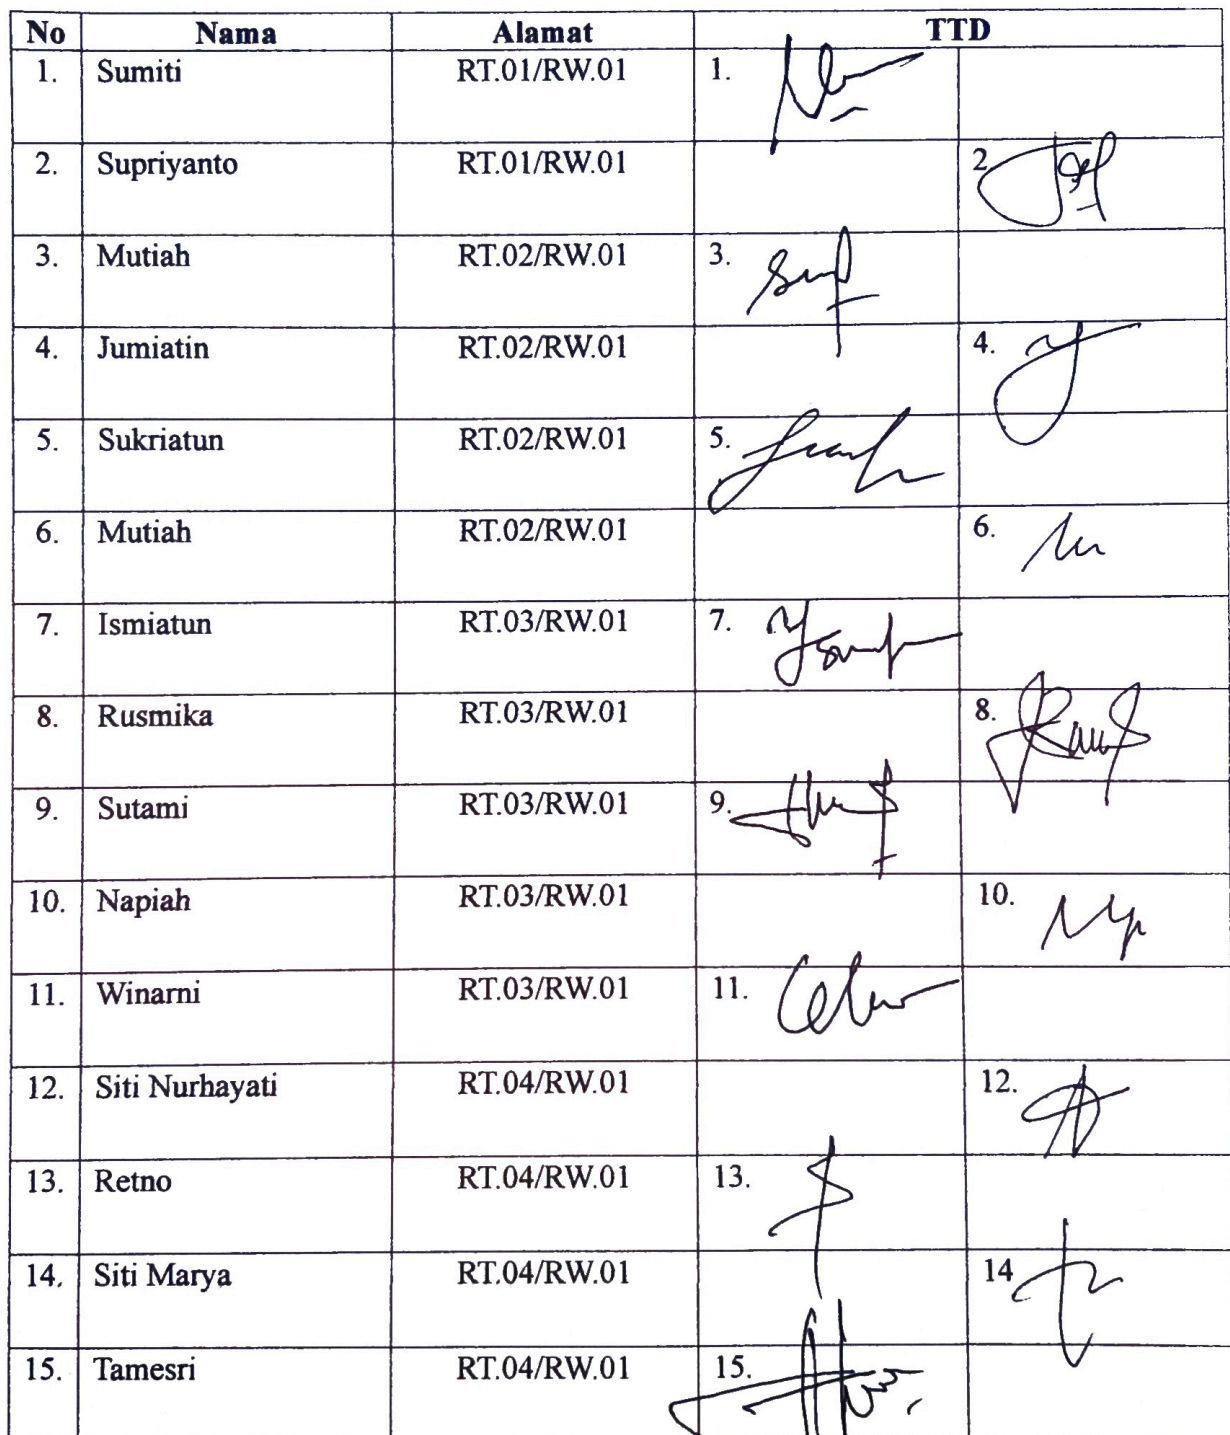 No Nama Alamat TTD
1. Sumiti RT.01/RW.01 1.
2. Supriyanto RT.01/RW.01 2
3. Mutiah RT.02/RW.01 3.
4. Jumiatin RT.02/RW.01 4.
5. Sukriatun RT.02/RW.01 5.
6. Mutiah RT.02/RW.01 6.
7. Ismiatun RT.03/RW.01 7.
8. Rusmika RT.03/RW.01 8.
9. Sutami RT.03/RW.01 9.
10. Napiah RT.03/RW.01 10.
11. Winarni RT.03/RW.01 11.
12. Siti Nurhayati RT.04/RW.01 12.
13. Retno RT.04/RW.01 13.
14. Siti Marya RT.04/RW.01 14
15. Tamesri RT.04/RW.01 15.